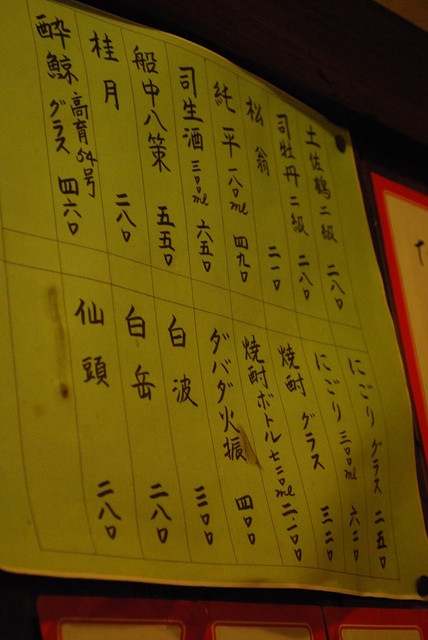 土佐鶴二級 二八〇
司牡丹二級 二八〇
松翁 二一〇
純平 一八〇ml 四九〇
司生酒 三〇〇ml 六五〇
船中八策 五五〇
桂月 二八〇
酔鯨 高育54号 グラス 四六〇
にごり グラス 二五〇
にごり 三〇〇ml 六二〇
焼酎 グラス 三二〇
焼酎ボトル 七二〇ml 二.一〇〇
ダバダ火振 四〇〇
白波 三〇〇
白岳 二八〇
仙頭 二八〇